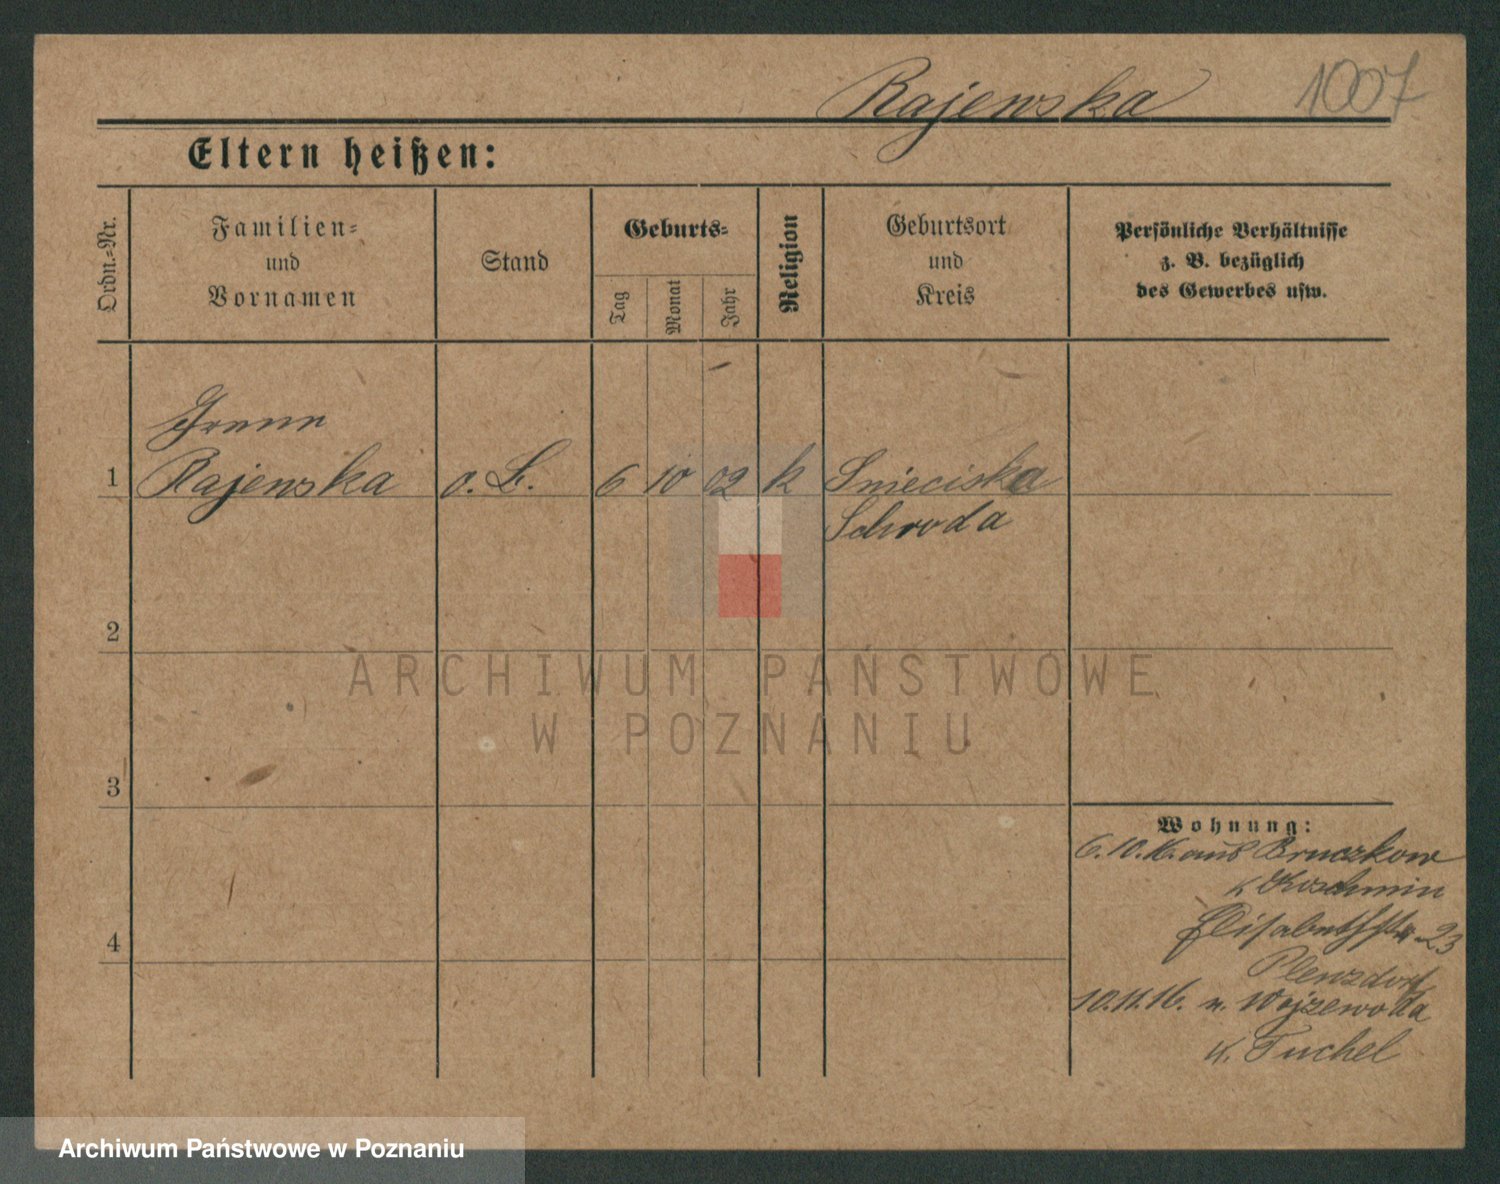 Rajewska 1007
Eltern heißen:
Ordn.-Nr.
Familien-
und
Vornamen
Stand
Geburts-
Tag
Monat
Jahr
Religion
Geburtsort
und
Kreis
Persönliche Verhältnisse
z. B. bezüglich
des Gewerbes usw.
Irene
1 Rajewska o. B. 6 10 02 k Snieciska
Schroda
2
ARCHIWUM PAŃSTWOWE
W POZNANIU
3
Wohnung:
6.10.16. aus Bruczkow
K Koschmin
4
Elisabethstr 23
Plenzdorf
10.11.16. n. Wojzewoda
K. Tuchel
Archiwum Państwowe w Poznaniu